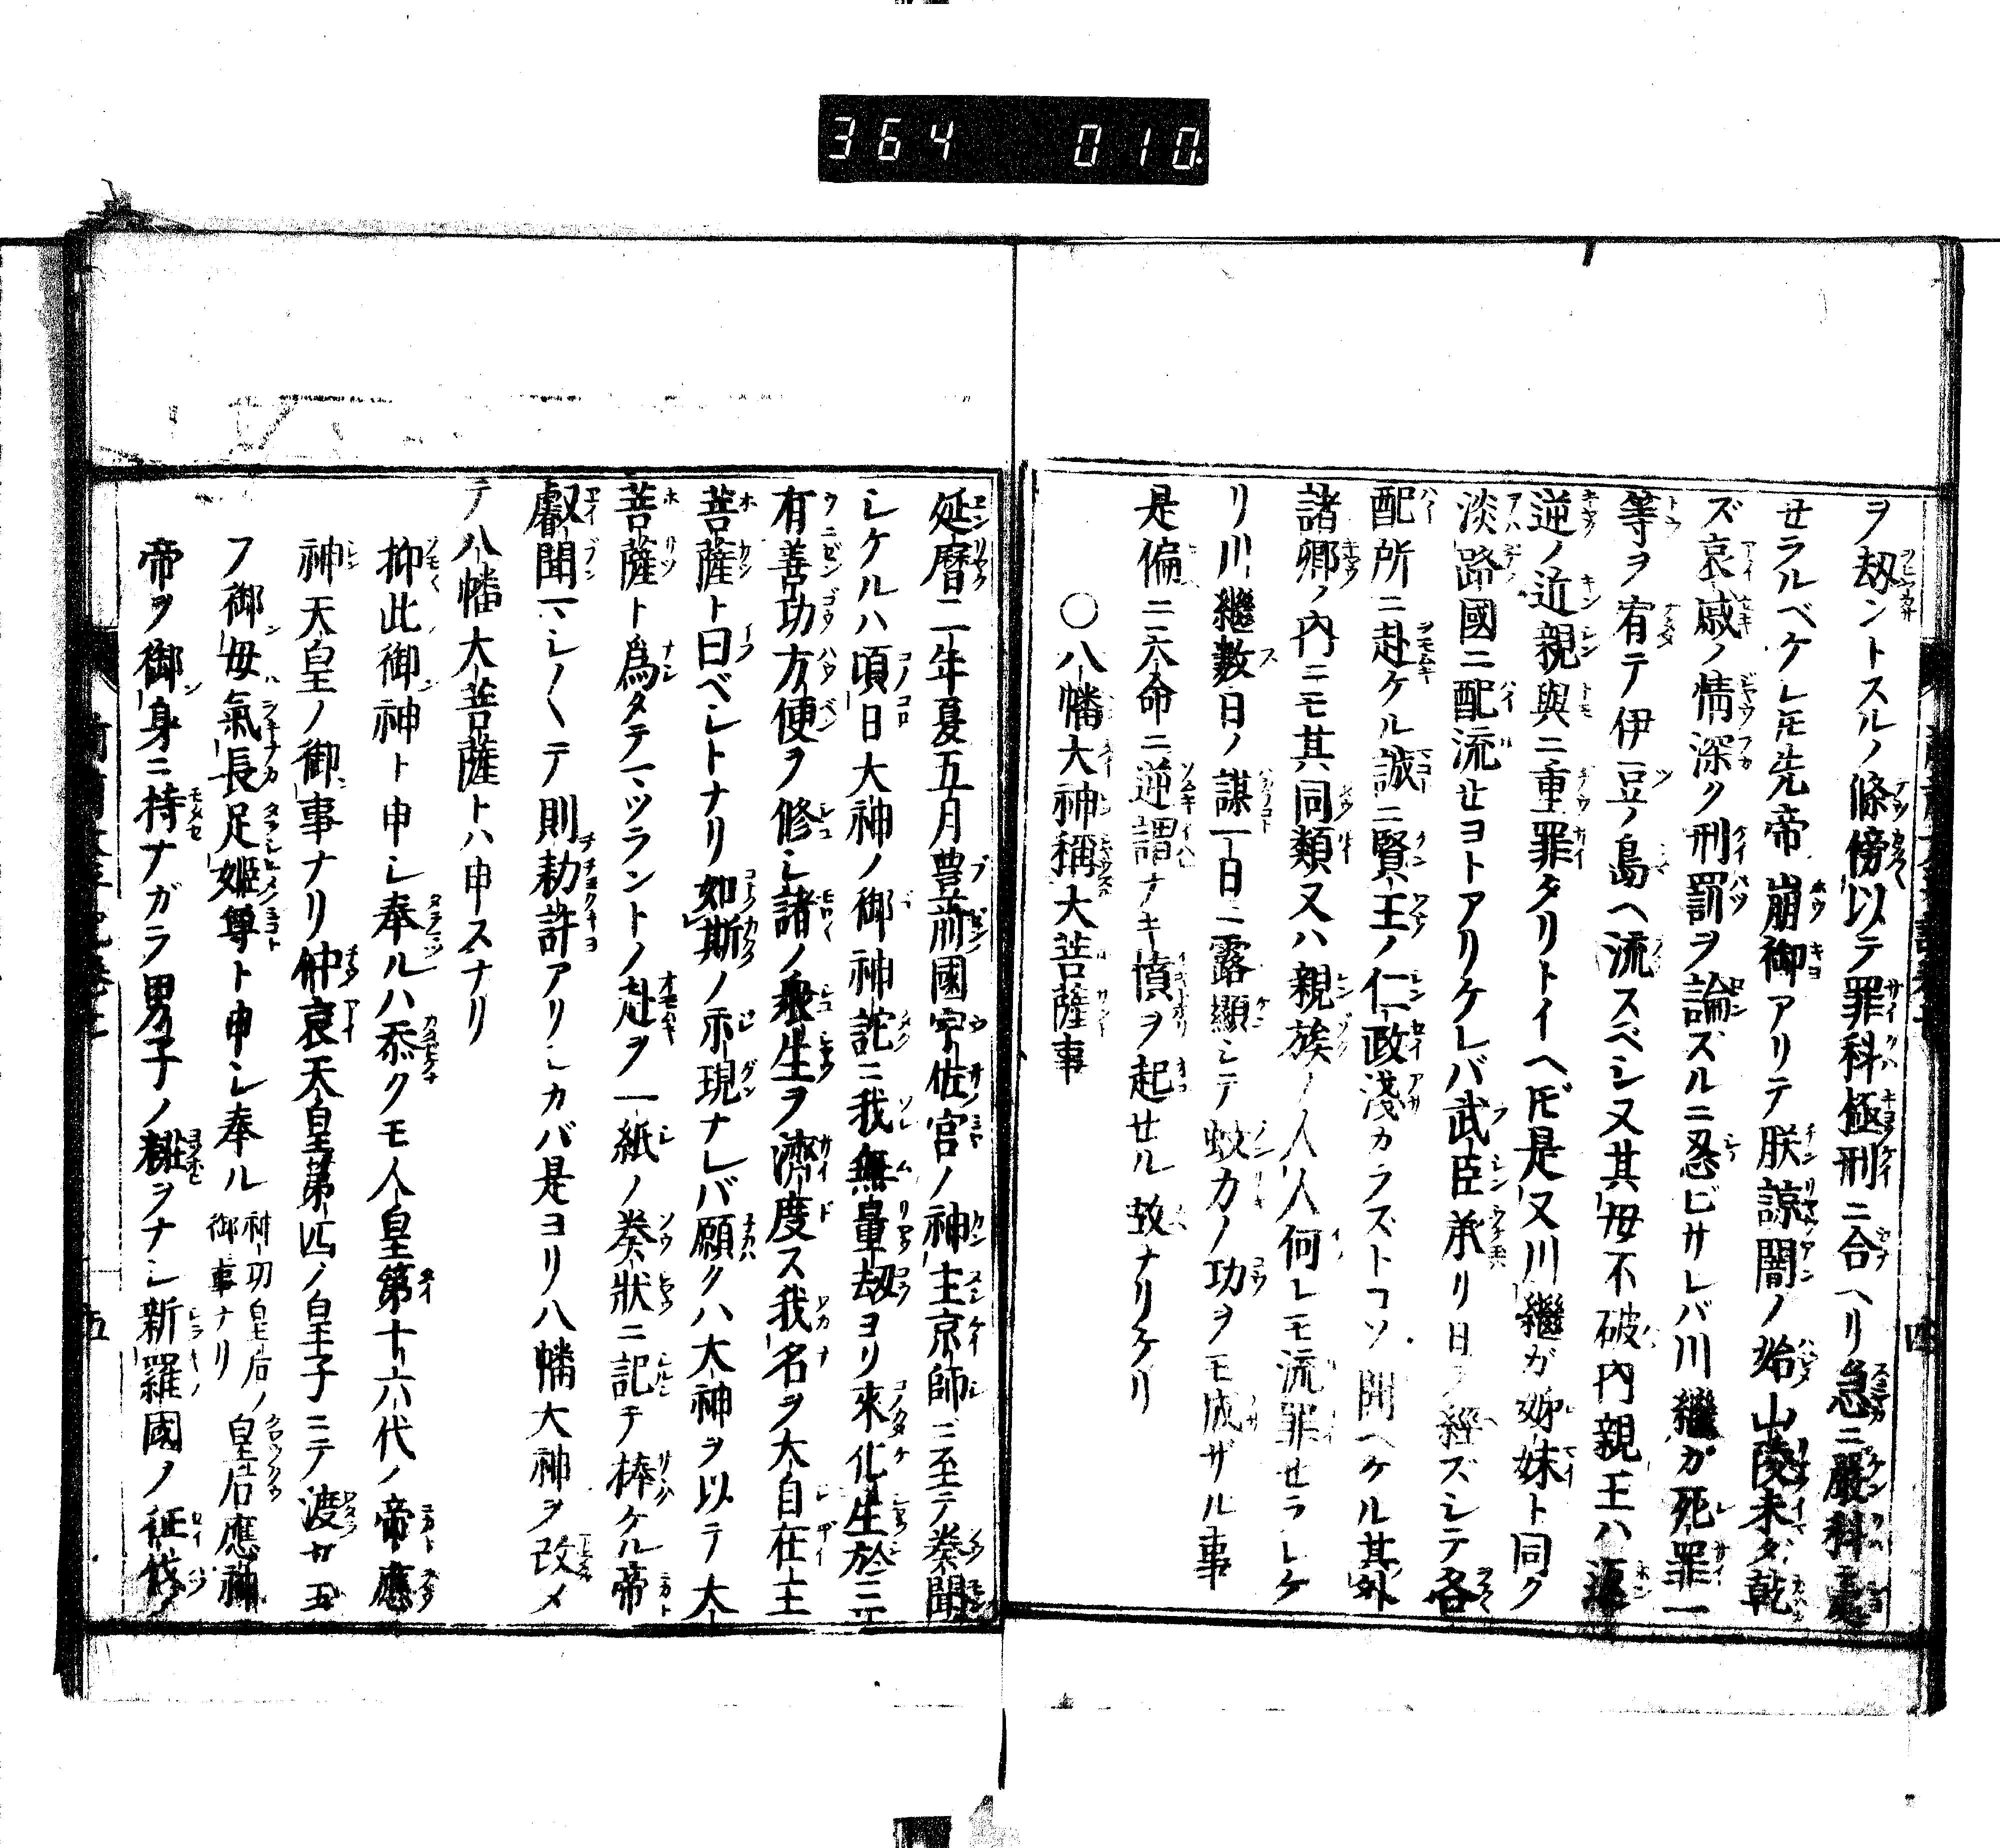 364 010
ヲ刼ントスルノ條傍以テ罪科極刑ニ合ヘリ急ニ嚴科ニ處
セラルベケレ𪜈先帝崩御アリテ朕諒闇ノ始山陵未ダ乾
ズ哀戚ノ情深ク刑罰ヲ論ズルニ忍ビサレバ川繼ガ死罪一
等ヲ宥テ伊豆ノ島ヘ流スベシ又其母不破内親王ハ返
逆ノ近親與ニ重罪タリトイヘ𪜈是又川繼ガ姊妹ト同ク
淡路國ニ配流セヨトアリケレバ武臣承リ日ヲ經ズシテ各
配所ニ赴ケル誠ニ賢王ノ仁政淺カラズトコソ聞ヘケル其外
諸卿ノ内ニモ其同類又ハ親族ノ人人何レモ流罪セラレケ
リ川繼數日ノ謀一日ニ露顯シテ蚊力ノ功ヲモ成ザル事
是偏ニ天命ニ逆謂ナキ憤ヲ起セル故ナリケリ
○八幡大神稱大菩薩事
延暦二年夏五月豊前國宇佐宮ノ神主京師ニ至テ奏聞
シケルハ頃日大神ノ御神詫ニ我無量刼ヨリ來化生於三
有善功方便ヲ修シ諸ノ衆生ヲ濟度ス我名ヲ大自在王
菩薩ト曰ベシトナリ如斯ノ示現ナレバ願クハ大神ヲ以テ大
菩薩ト爲タテマツラントノ赴ヲ一紙ノ奏狀ニ記テ捧ケル帝
叡聞マシ〱テ則勅許アリシカバ是ヨリ八幡大神ヲ改メ
テ八幡大菩薩トハ申スナリ
抑此御神ト申シ奉ルハ忝クモ人皇第十六代ノ帝應
神天皇ノ御事ナリ仲哀天皇第四ノ皇子ニテ渡セ玉
フ御母氣長足姬尊ト申シ奉ル神功皇后ノ御事ナリ皇后應神
帝ヲ御身ニ持ナガラ男子ノ粧ヲナシ新羅國ノ征伐
五